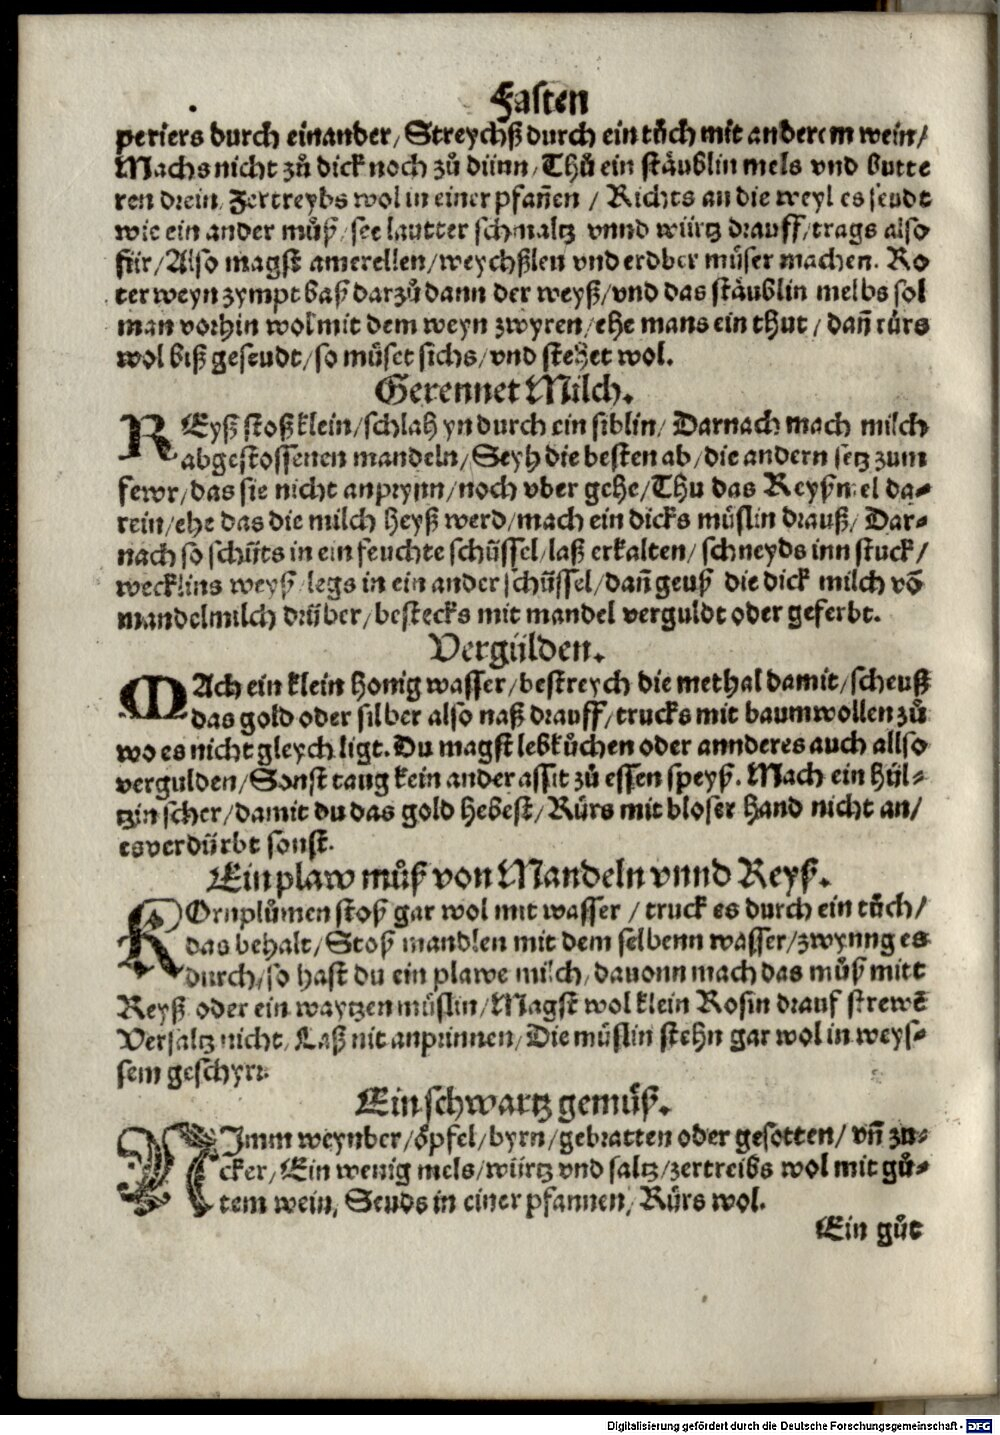 Fasten
periers durch einander/ Streychß durch ein tůch mit anderem wein/
Machs nicht zů dick noch zů dünn/ Thů ein ståublin mels vnd butte
ren drein/ Zertreybs wol in einer pfañen / Richts an die weyl es seudt
wie ein ander můß/ see lautter schmaltz vnnd würtz drauff/ trags also
für/ Also magst amerellen/ weychßlen vnd erdber můser machen. Ro
ter weyn zympt baß darzů dann der weyß/ vnd das ståublin melbs sol
man vorhin wol mit dem weyn zwyren/ ehe mans ein thut / dañ rürs
wol biß geseudt/ so můset sichs/ vnd stehet wol.
Gerennet Milch.
REyß stoß klein/ schlah yn durch ein siblin/ Darnach mach milch
abgestossenen mandeln/ Seyh die besten ab/ die andern setz zum
fewr/ das sie nicht anprynn/ noch vber gehe/ Thu das Reyßmel da⸗
rein/ ehe das die milch heyß werd/ mach ein dicks můslin drauß/ Dar⸗
nach so schüts in ein feuchte schüssel/ laß erkalten/ schneyds inn stuck/
wecklins weyß/ legs in ein ander schüssel/ dañ geuß die dick milch võ
mandelmilch drüber/ bestecks mit mandel verguldt oder geferbt.
Vergülden.
MAch ein klein honig wasser/ bestreych die methal damit/ scheuß
das gold oder silber also naß drauff/ trucks mit baumwollen zů
wo es nicht gleych ligt. Du magst lebkůchen oder annderes auch allso
vergulden/ Sonst taug kein ander assit zů essen speyß. Mach ein hül⸗
tzin scher/ damit du das gold hebest/ Rürs mit bloser hand nicht an/
es verdürbt sonst.
Ein plaw můß von Mandeln vnnd Reyß.
KOrnplůmen stoß gar wol mit wasser / truck es durch ein tůch/
das behalt/ Stoß mandlen mit dem selbenn wasser/ zwynng es
durch/ so hast du ein plawe milch/ dauonn mach das můß mitt
Reyß oder ein waytzen můslin/ Magst wol klein Rosin drauf strewẽ
Versaltz nicht/ Laß nit anprinnen/ Die můslin stehn gar wol in weys⸗
sem geschyrr.
Ein schwartz gemůß.
NImm weynber/ öpfel/ byrn/ gebratten oder gesotten/ vñ zu⸗
cker/ Ein wenig mels/ würtz vnd saltz/ zertreibs wol mit gů⸗
tem wein/ Seuds in einer pfannen/ Rürs wol.
Ein gůt
Digitalisierung gefördert durch die Deutsche Forschungsgemeinschaft - DFG